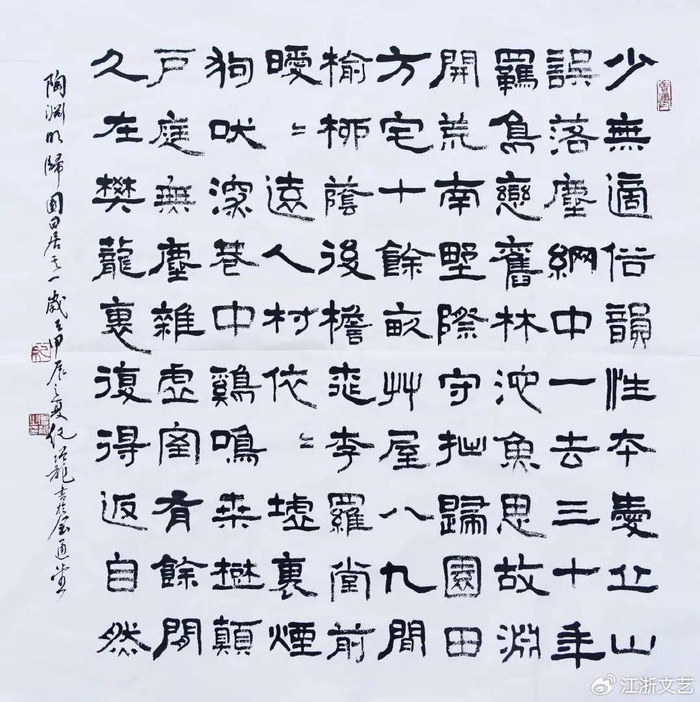 少無適俗韻性本愛丘山
誤落塵網中一去三十年
羈鳥戀舊林池魚思故淵
開荒南野際守拙歸園田
方宅十餘畝艸屋八九間
榆柳蔭後檐桃李羅堂前
曖〻遠人村依〻墟裏煙
狗吠深巷中鷄鳴桑樹顛
戶庭無塵雜虛室有餘閒
久在樊龍裏復得返自然
陶淵明歸園田居其一歲在甲辰之夏倪龍書於金通堂
江浙文艺